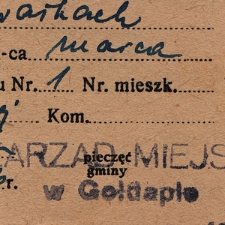 -ca marca
u Nr. 1 Nr. mieszk.
Kom.
ARZĄD MIEJS
pieczęć
gminy
w Gołdapie
er.